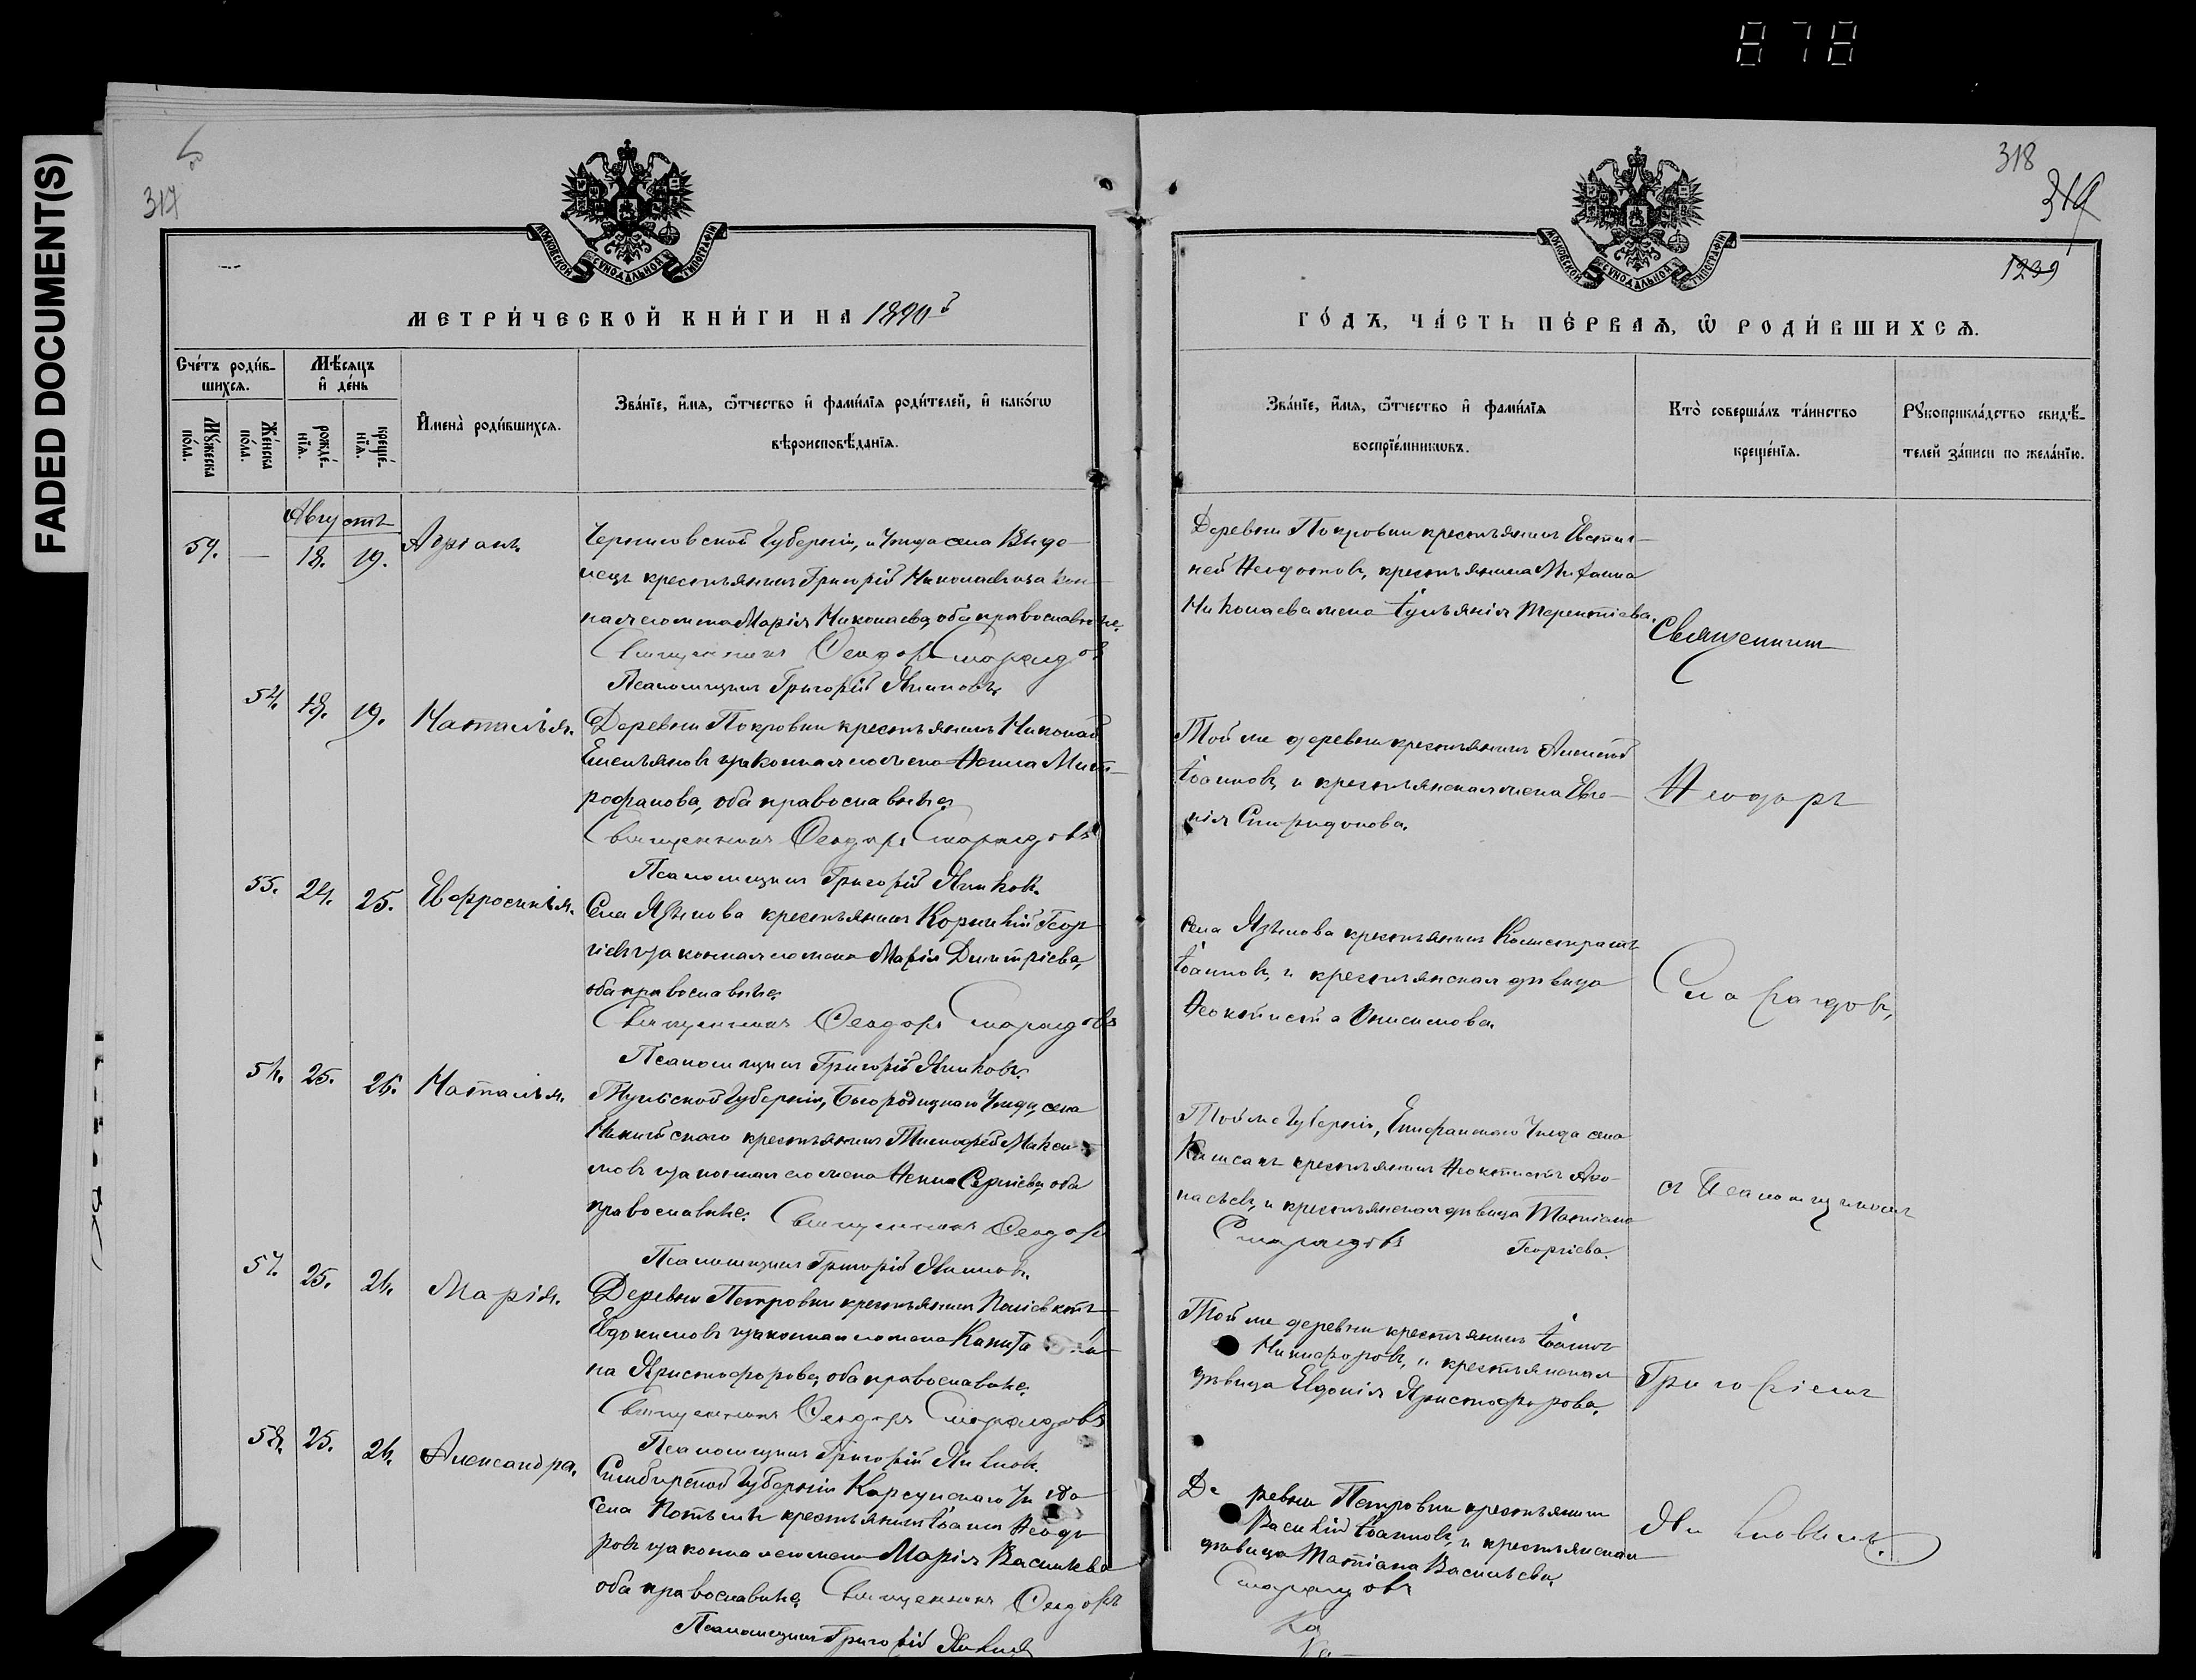 878
FADED DOCUMENT(S)
317
318
319
1239
МОСКОВСКОЙ СѴНОДАЛЬНОЙ ТИПОГРАФІИ
МОСКОВСКОЙ СѴНОДАЛЬНОЙ ТИПОГРАФІИ
МЕТРИ́ЧЕСКОЙ КНИ́ГИ НА 1890й
ГО́ДЪ, ЧА́СТЬ ПЕ́РВАѦ, Ѡ҆ РОДИ́ВШИХСѦ.
Сче́тъ роди́в-
шихсѧ.
Мѣ́сѧцъ
и҆ де́нь
Мꙋ́жеска
по́ла.
Же́нска
по́ла.
рожде́-
нїѧ.
креще́-
нїѧ.
И҆мена̀ роди́вшихсѧ.
Зва́нїе, и҆́мѧ, ѻ҆́тчество и҆ фами́лїѧ роди́телей, и҆ како́гѡ
вѣроисповѣ́данїѧ.
Зва́нїе, и҆́мѧ, ѻ҆́тчество и҆ фами́лїѧ
воспрїе́мникѡвъ.
Кто̀ соверша́лъ та́инство
креще́нїѧ.
Рꙋкоприкла́дство свидѣ́-
телей за́писи по жела́нїю.
Августъ
59. — 18. 19. Адріанъ
Черниговской Губерніи, и Уѣзда села
крестьянинъ Григорій Николаевъ и закон-
ная его жена Марія Николаева, оба православные.
Священникъ Ѳеодоръ Смарагдовъ
Псаломщикъ Григорій
Деревни Покровки крестьянинъ Евстиг-
ней Ѳедотовъ, крестьянина Митрофана
Николаева жена Іуліанія Терентіева.
Священникъ
54. 18. 19. Наталья.
Деревни Покровки крестьянинъ Николай
Емельяновъ и законная его жена Анна Мит-
рофанова, оба православные.
Священникъ Ѳеодоръ Смарагдовъ
Псаломщикъ Григорій
Той же деревни крестьянинъ Алексѣй
Іоанновъ, и крестьянская жена Евге-
нія Спиридонова.
Ѳеодоръ
55. 24. 25. Евфросинія.
Села Языкова крестьянинъ Корнилій Геор-
гіевъ и законная его жена Марія Димитріева,
оба православные.
Священникъ Ѳеодоръ Смарагдовъ
Псаломщикъ Григорій
Села Языкова крестьянинъ Калистратъ
Іоанновъ, и крестьянская дѣвица
Ѳеоктиста Онисимова.
Смарагдовъ,
56. 25. 26. Наталья.
Тульской Губерніи, Богородицкаго Уѣзда, села
Никитскаго крестьянинъ Тимофей Макси-
мовъ и законная его жена Анна Сергіева, оба
православные. Священникъ Ѳеодоръ
Смарагдовъ
Псаломщикъ Григорій
Той же Губерніи, Епифанскаго Уѣзда села
крестьянинъ Ѳеоктистъ Аѳа-
насьевъ, и крестьянская дѣвица Татіана
Георгіева.
съ Псаломщикомъ
57. 25. 26. Марія.
Деревни Петровки крестьянинъ Поліевктъ
Евдокимовъ и законная его жена Капито
на Христофорова, оба православные.
Священникъ Ѳеодоръ Смарагдовъ
Псаломщикъ Григорій
Той же деревни крестьянинъ Іоаннъ
Никифоровъ, и крестьянская
дѣвица Евдокія Христофорова.
Григоріемъ
58. 25. 26. Александра.
Симбирской Губерніи Карсунскаго Уѣзда
села Потьмы крестьянинъ Іоаннъ Ѳеодо-
ровъ и законная его жена Марія Васильева
оба православные. Священникъ Ѳеодоръ
Смарагдовъ
Псаломщикъ Григорій
Деревни Петровки крестьянинъ
Василій Іоанновъ, и крестьянская
дѣвица Татіана Васильева.